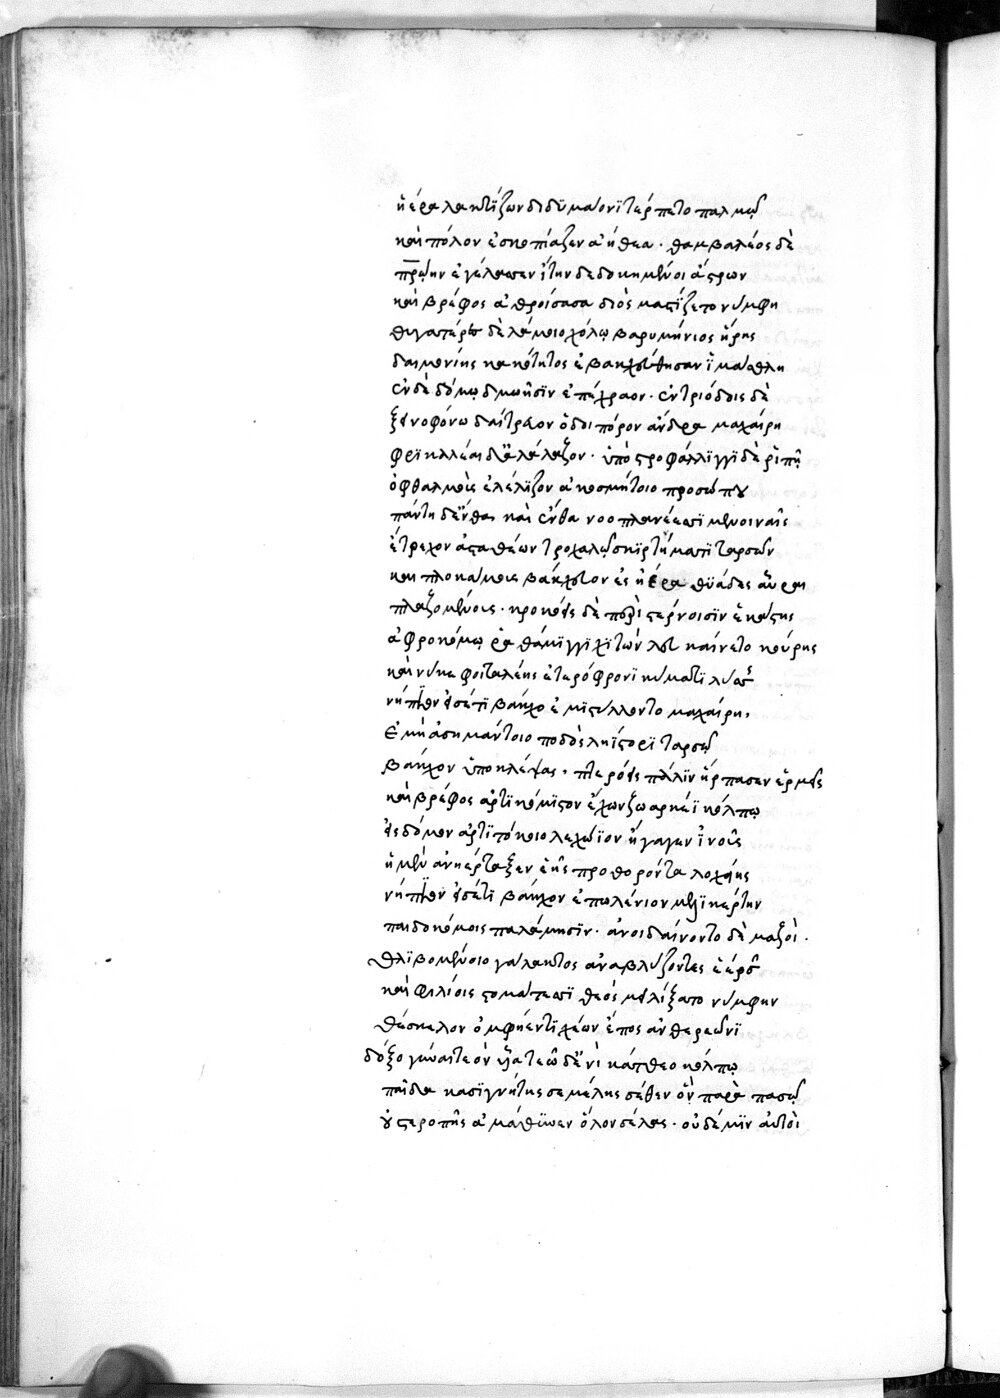 ἠέρα λακτίζων διδυμάονι τέρπετο παλμῷ
καὶ πόλον ἐσκοπίαζεν ἀήθεα · θαμβαλέος δὲ
πρώην ἐγέλασσεν ἴτην δεδοκημένοι ἄστρων
καὶ βρέφος ἀθροίσασα διὸς μαστίζετο νύμφη
θυγατέρες δὲ λάμοιο χόλῳ βαρυμήνιος ἥρης
δαιμονίης κακότητος ἐβακχεύθησαν ἱμάσθλη
ἐν δὲ δόμῳ δμωῆσιν ἐπέχραον · ἐν τριόδοις δὲ
ξεινοφόνω δαίτρευον ὁδοιπόρον ἄνδρα μαχαίρη
φρικαλέαι δ' ἀλάλαζον · ὑπὸ στροφάλιγγι δὲ ῥιπῆ
ὀφθαλμοὺς ἐλέλιζον ἀκοσμήτοιο προσώπου
πάντη δ' ἔνθα καὶ ἔνθα νοοπλανέεσσι μενοιναῖς
ἔτρεχον ἀσταθέων τροχαλῷ σκιρτήματι ταρσῶν
καὶ πλοκάμους βάκχευον ἐς ἠέρα θυϊάδες αὖραι
πλαζομένους · κροκόεις δὲ περὶ στέρνοισιν ἑκάστης
ἀφροκόμῳ ῥαθάμιγγι χιτὼν λευκαίνετο κούρης
καὶ νύ κε φοιταλέης ἑτερόφρονι κύματι λύσσης
νήπιον εἰσέτι βάκχο ἐμιστύλλοντο μαχαίρη,
εἰ μὴ ἀσημάντοιο ποδὸς ληΐστορι ταρσῷ
βάκχον ὑποκλέψας · πτερόεις πάλιν ἥρπασεν ἑρμῆς
καὶ βρέφος ἀρτικόμιστον ἔχων ζωαρκέϊ κόλπῳ
εἰς δόμον ἀρτιτόκοιο λεχώϊον ἤγαγεν ἰνοῦς
ἡ μὲν ἀνηέρταζεν ἑῆς προθορόντα λοχείης
νήπιον εἰσέτι βάκχον ἐπωλένιον μελικέρτην
παιδοκόμοις παλάμησιν · ἀνοιδαίνοντο δὲ μαζοὶ ·
θλιβομένοιο γάλακτος ἀναβλύζοντες ἐέρσην
καὶ φιλίοις στομάτεσσι θεὸς μειλίξατο νύμφην
θέσκελον ὀμφήεντι χέων ἔπος ἀνθερεῶνι
δέξο γύναι τεὸν υἷα τεῷ δ' ἐνὶ κάτθεο κόλπῳ
παῖδα κασιγνήτης σεμέλης σέθεν ὃν παρὰ παστῷ
οὐ στεροπῆς ἀμάθυνεν ὅλον σέλας · οὐδέ μιν αὐτοὶ